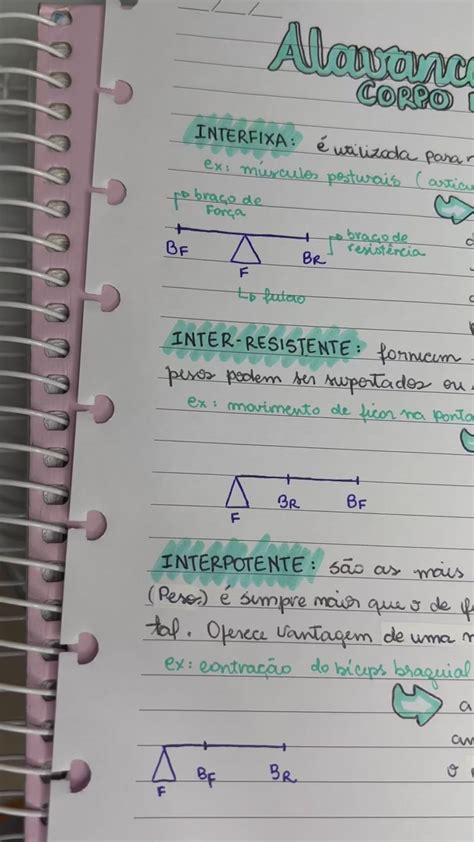 Alavanc
CORPO
INTERFIXA: é utilizada para
ex: músculos posturais (artic
braço de
Força
braço de
resistência
BF
F
BR
fulcro
INTER-RESISTENTE: fornecem
pesos podem ser suportados ou
ex: movimento de ficar na ponta
F
BR
BF
INTERPOTENTE: são as mais
(Peso) é sempre maior que o de
tal. Oferece vantagem de uma
ex: contração do bíceps braquial
a
am
o
F
BF
BR